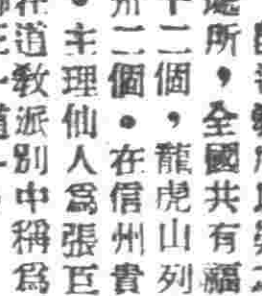 所，全國共有福
十二個，龍虎山列
州二個。在信州貴
。主理仙人爲張巨
道教派別中稱爲